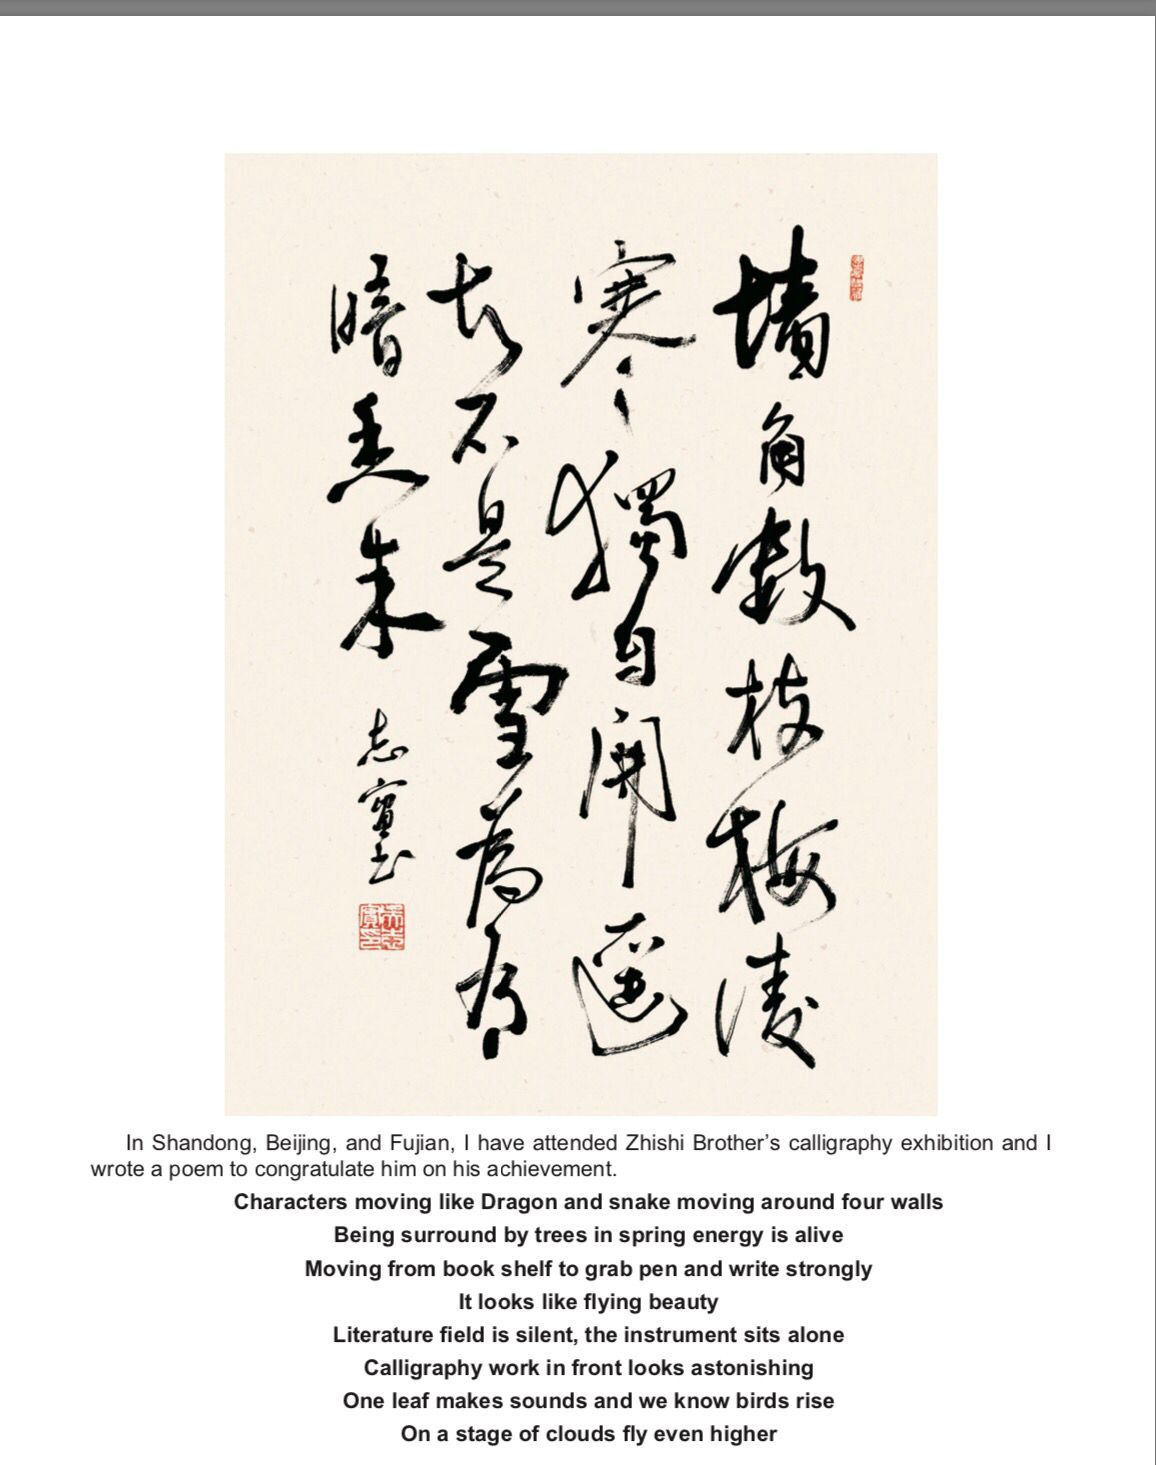 墙角数枝梅凌
寒独自開遥
知不是雪為有
暗香来
志實书
In Shandong, Beijing, and Fujian, I have attended Zhishi Brother’s calligraphy exhibition and I
wrote a poem to congratulate him on his achievement.
Characters moving like Dragon and snake moving around four walls
Being surround by trees in spring energy is alive
Moving from book shelf to grab pen and write strongly
It looks like flying beauty
Literature field is silent, the instrument sits alone
Calligraphy work in front looks astonishing
One leaf makes sounds and we know birds rise
On a stage of clouds fly even higher